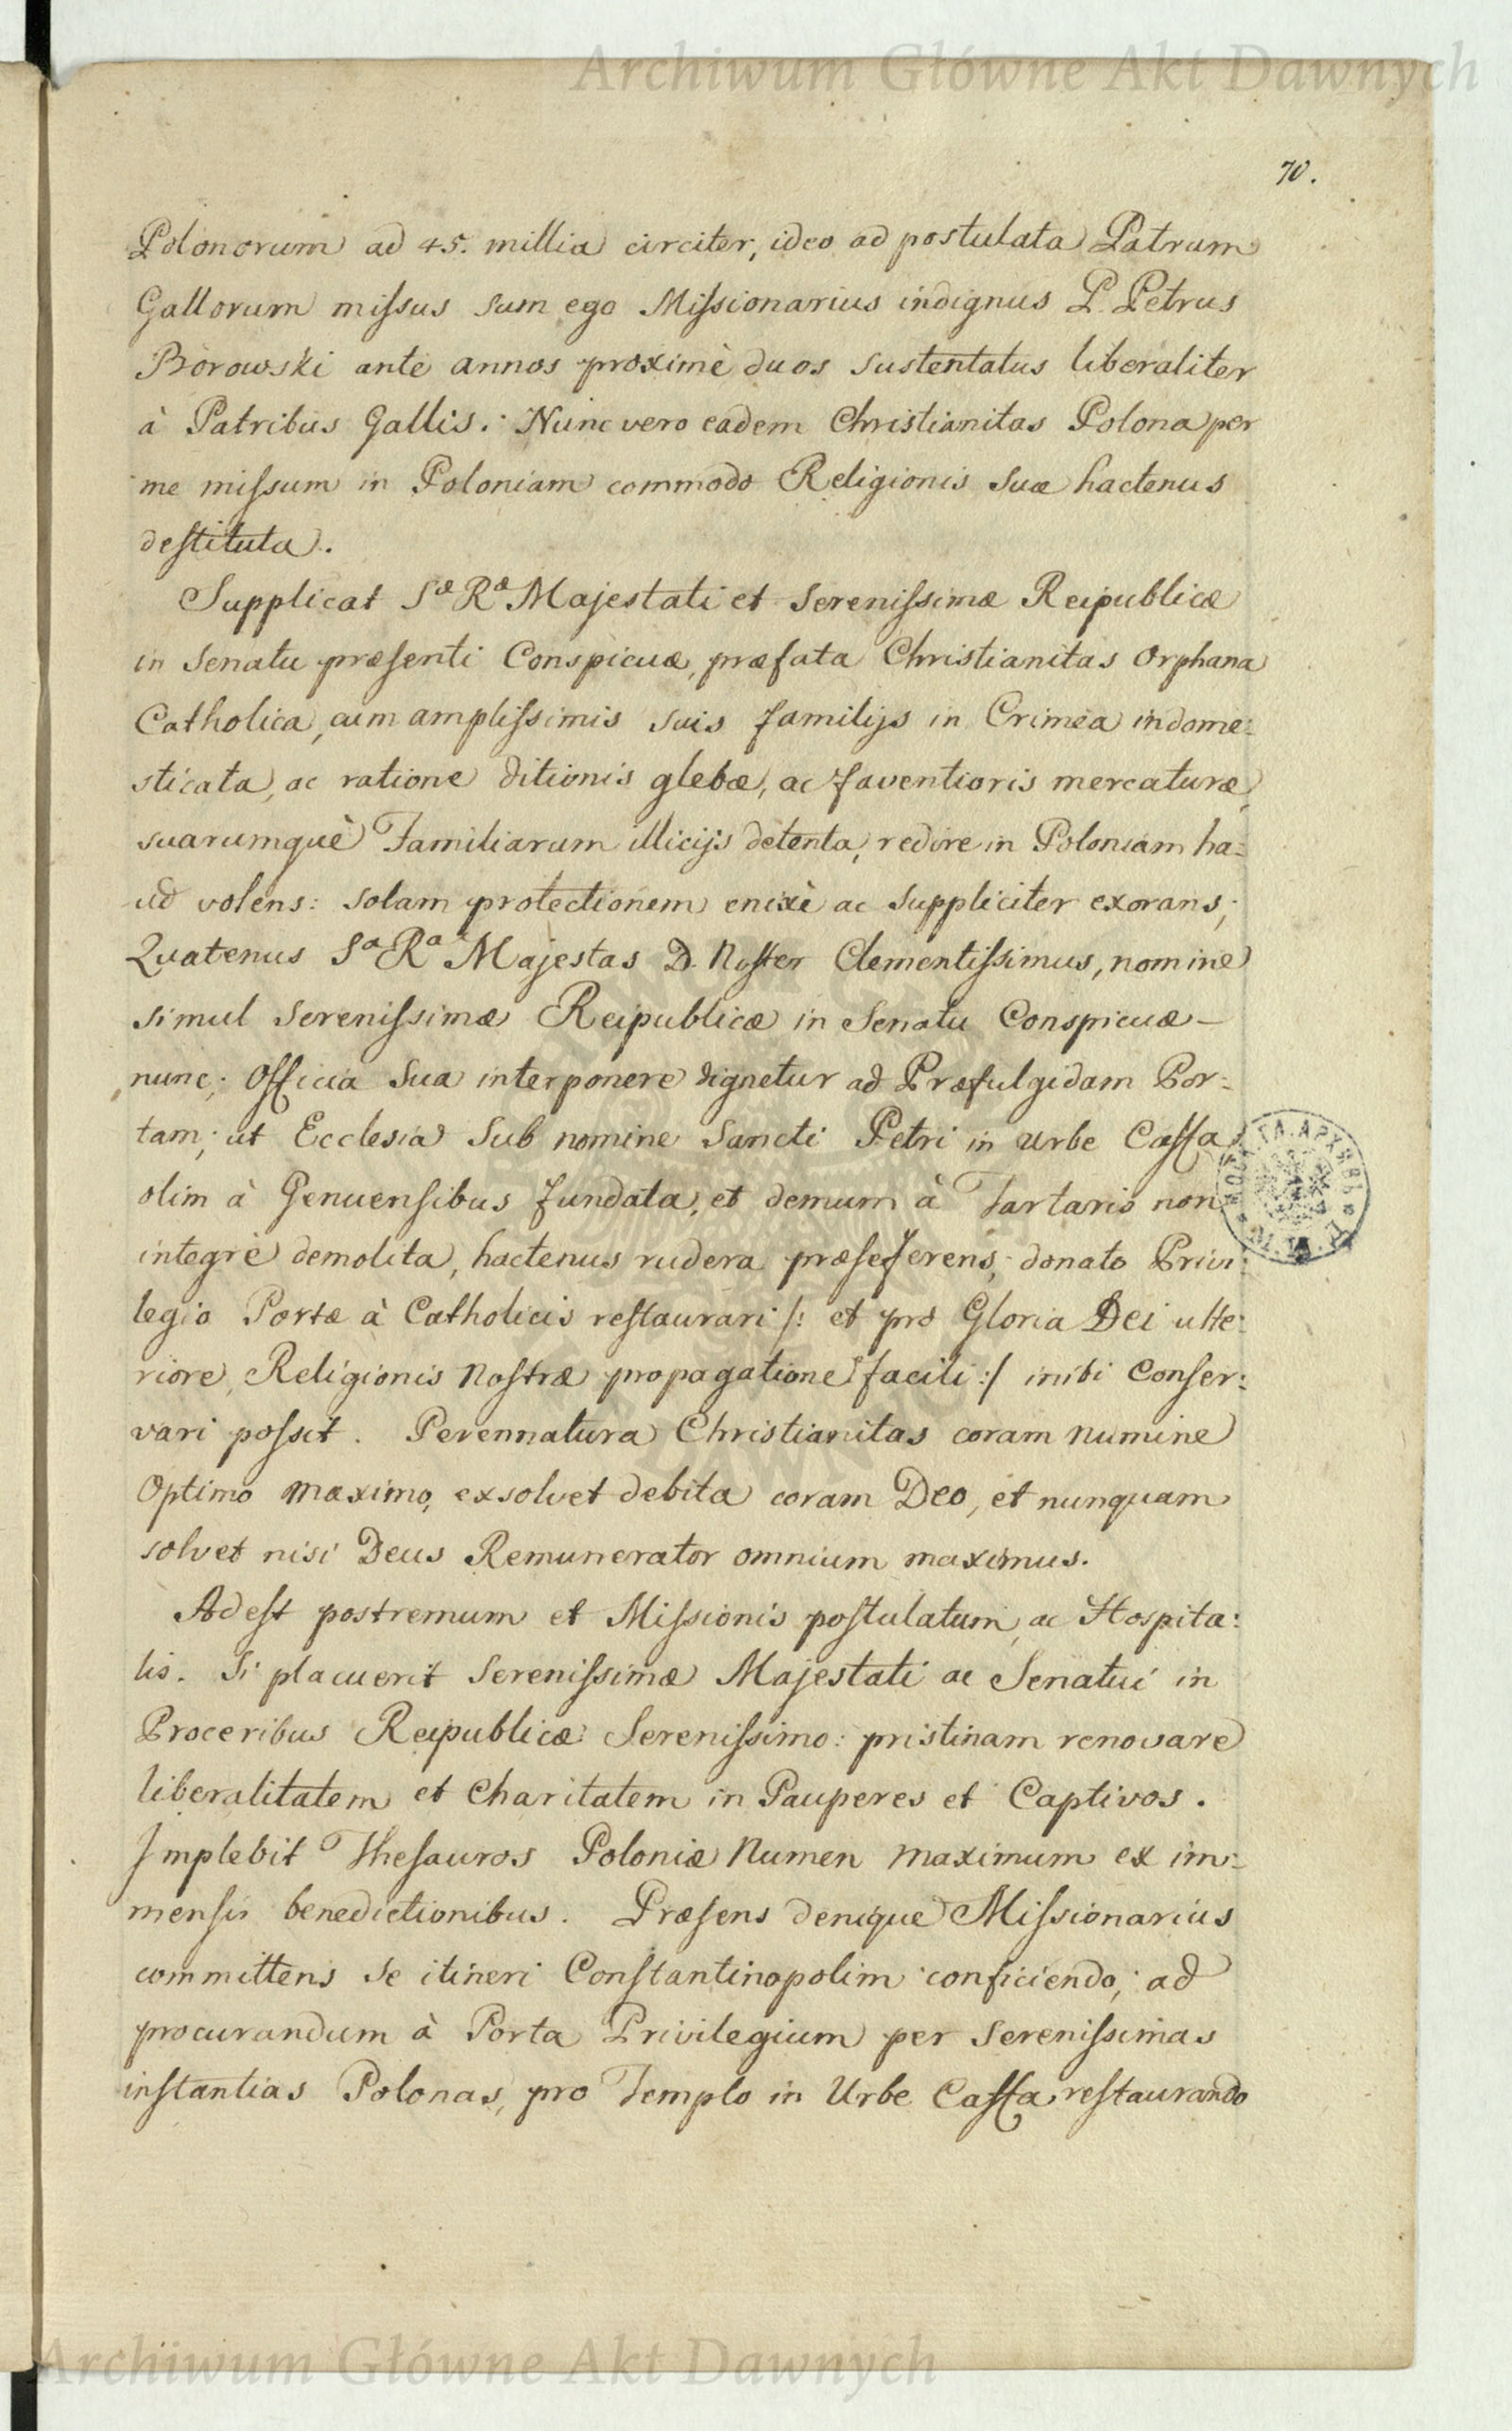 Archiwum Główne Akt Dawnych
70.
Polonorum ad 45. millia circiter, ideo ad postulata Patrum
Gallorum miſsus sum ego Miſsionarius indignus P. Petrus
Borowski ante annos proximè duos sustentatus liberaliter
à Patribus Gallis. Nunc vero eadem Christianitas Polona per
me miſsum in Poloniam commodo Religionis suæ hactenus
deſtituta.
Supplicat Sæ Ræ Majestati et Sereniſsimæ Reipublicæ
in Senatu præſenti Conspicuæ, præfata Christianitas Orphana
Catholica, cum ampliſsimis suis familijs in Crimea indome:
sticata, ac ratione ditionis glebæ, ac faventioris mercaturæ,
suarumquè Familiarum illicijs detenta, redire in Poloniam ha:
ud volens: solam protectionem enixè ac suppliciter exorans;
Quatenus Sa Ra Majestas D. Noſter Clementiſsimus, nomine
simul Sereniſsimæ Reipublicæ in Senatu Conspicuæ –
nunc; Officia sua interponere dignetur ad Præfulgidam Por:
tam; ut Ecclesia sub nomine Sancti Petri in Urbe Caffa
olim à Genuenſibus fundata, et demum à Tartaris non
integrè demolita, hactenus rudera præſeferens; donato Privi:
legio Portæ à Catholicis reſtaurari /: et pro Gloria Dei ulte:
riore, Religionis Noſtræ propagatione facili :/ inibi Conſer:
vari poſsit. Perennatura Christianitas coram Numine
Optimo Maximo, exsolvet debita coram Deo, et nunquam
solvet nisi Deus Remunerator omnium maximus.
Adeſt postremum et Miſsionis poſtulatum, ac Hospita:
lis. Si placuerit Sereniſsimæ Majestati ac Senatui in
Proceribus Reipublicæ Sereniſsimo: pristinam renovare
liberalitatem et Charitatem in Pauperes et Captivos.
Implebit Theſauros Poloniæ Numen Maximum ex im:
menſis benedictionibus. Præſens denique Miſsionarius
committens se itineri Conſtantinopolim conficiendo; ad
procurandum à Porta Privilegium per Sereniſsimas
inſtantias Polonas, pro Templo in Urbe Caffa reſtaurando
Archiwum Główne Akt Dawnych